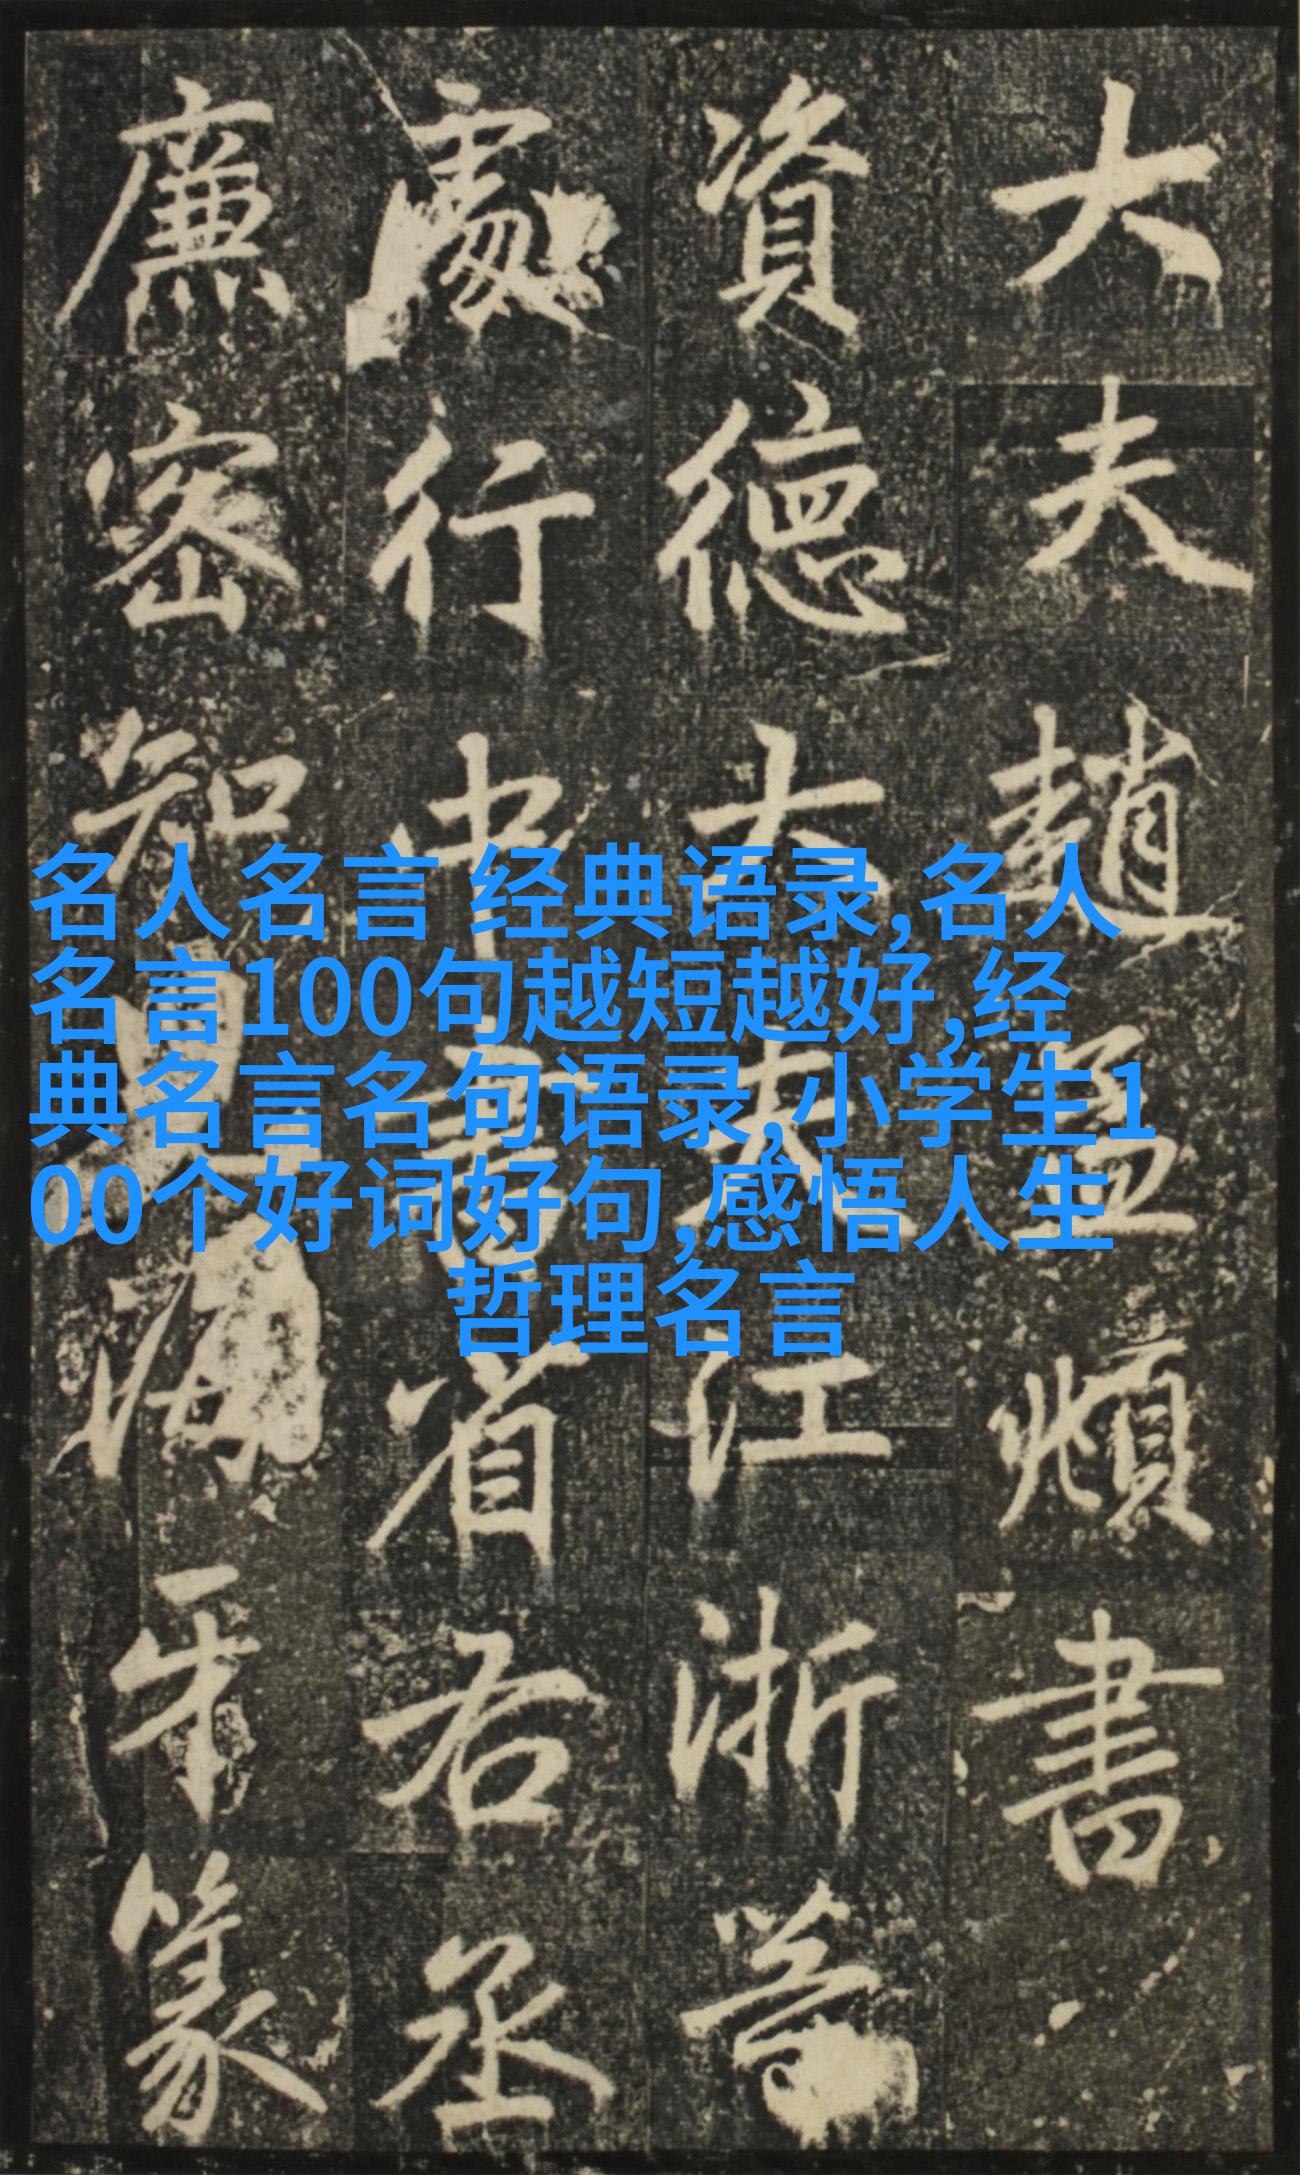 大夫趙孟頫書
資德大夫江浙等
處行中書省右丞
廉密知兒海牙篆
名人名言 经典语录,名人
名言100句越短越好,经
典名言名句语录,小学生1
00个好词好句,感悟人生
哲理名言